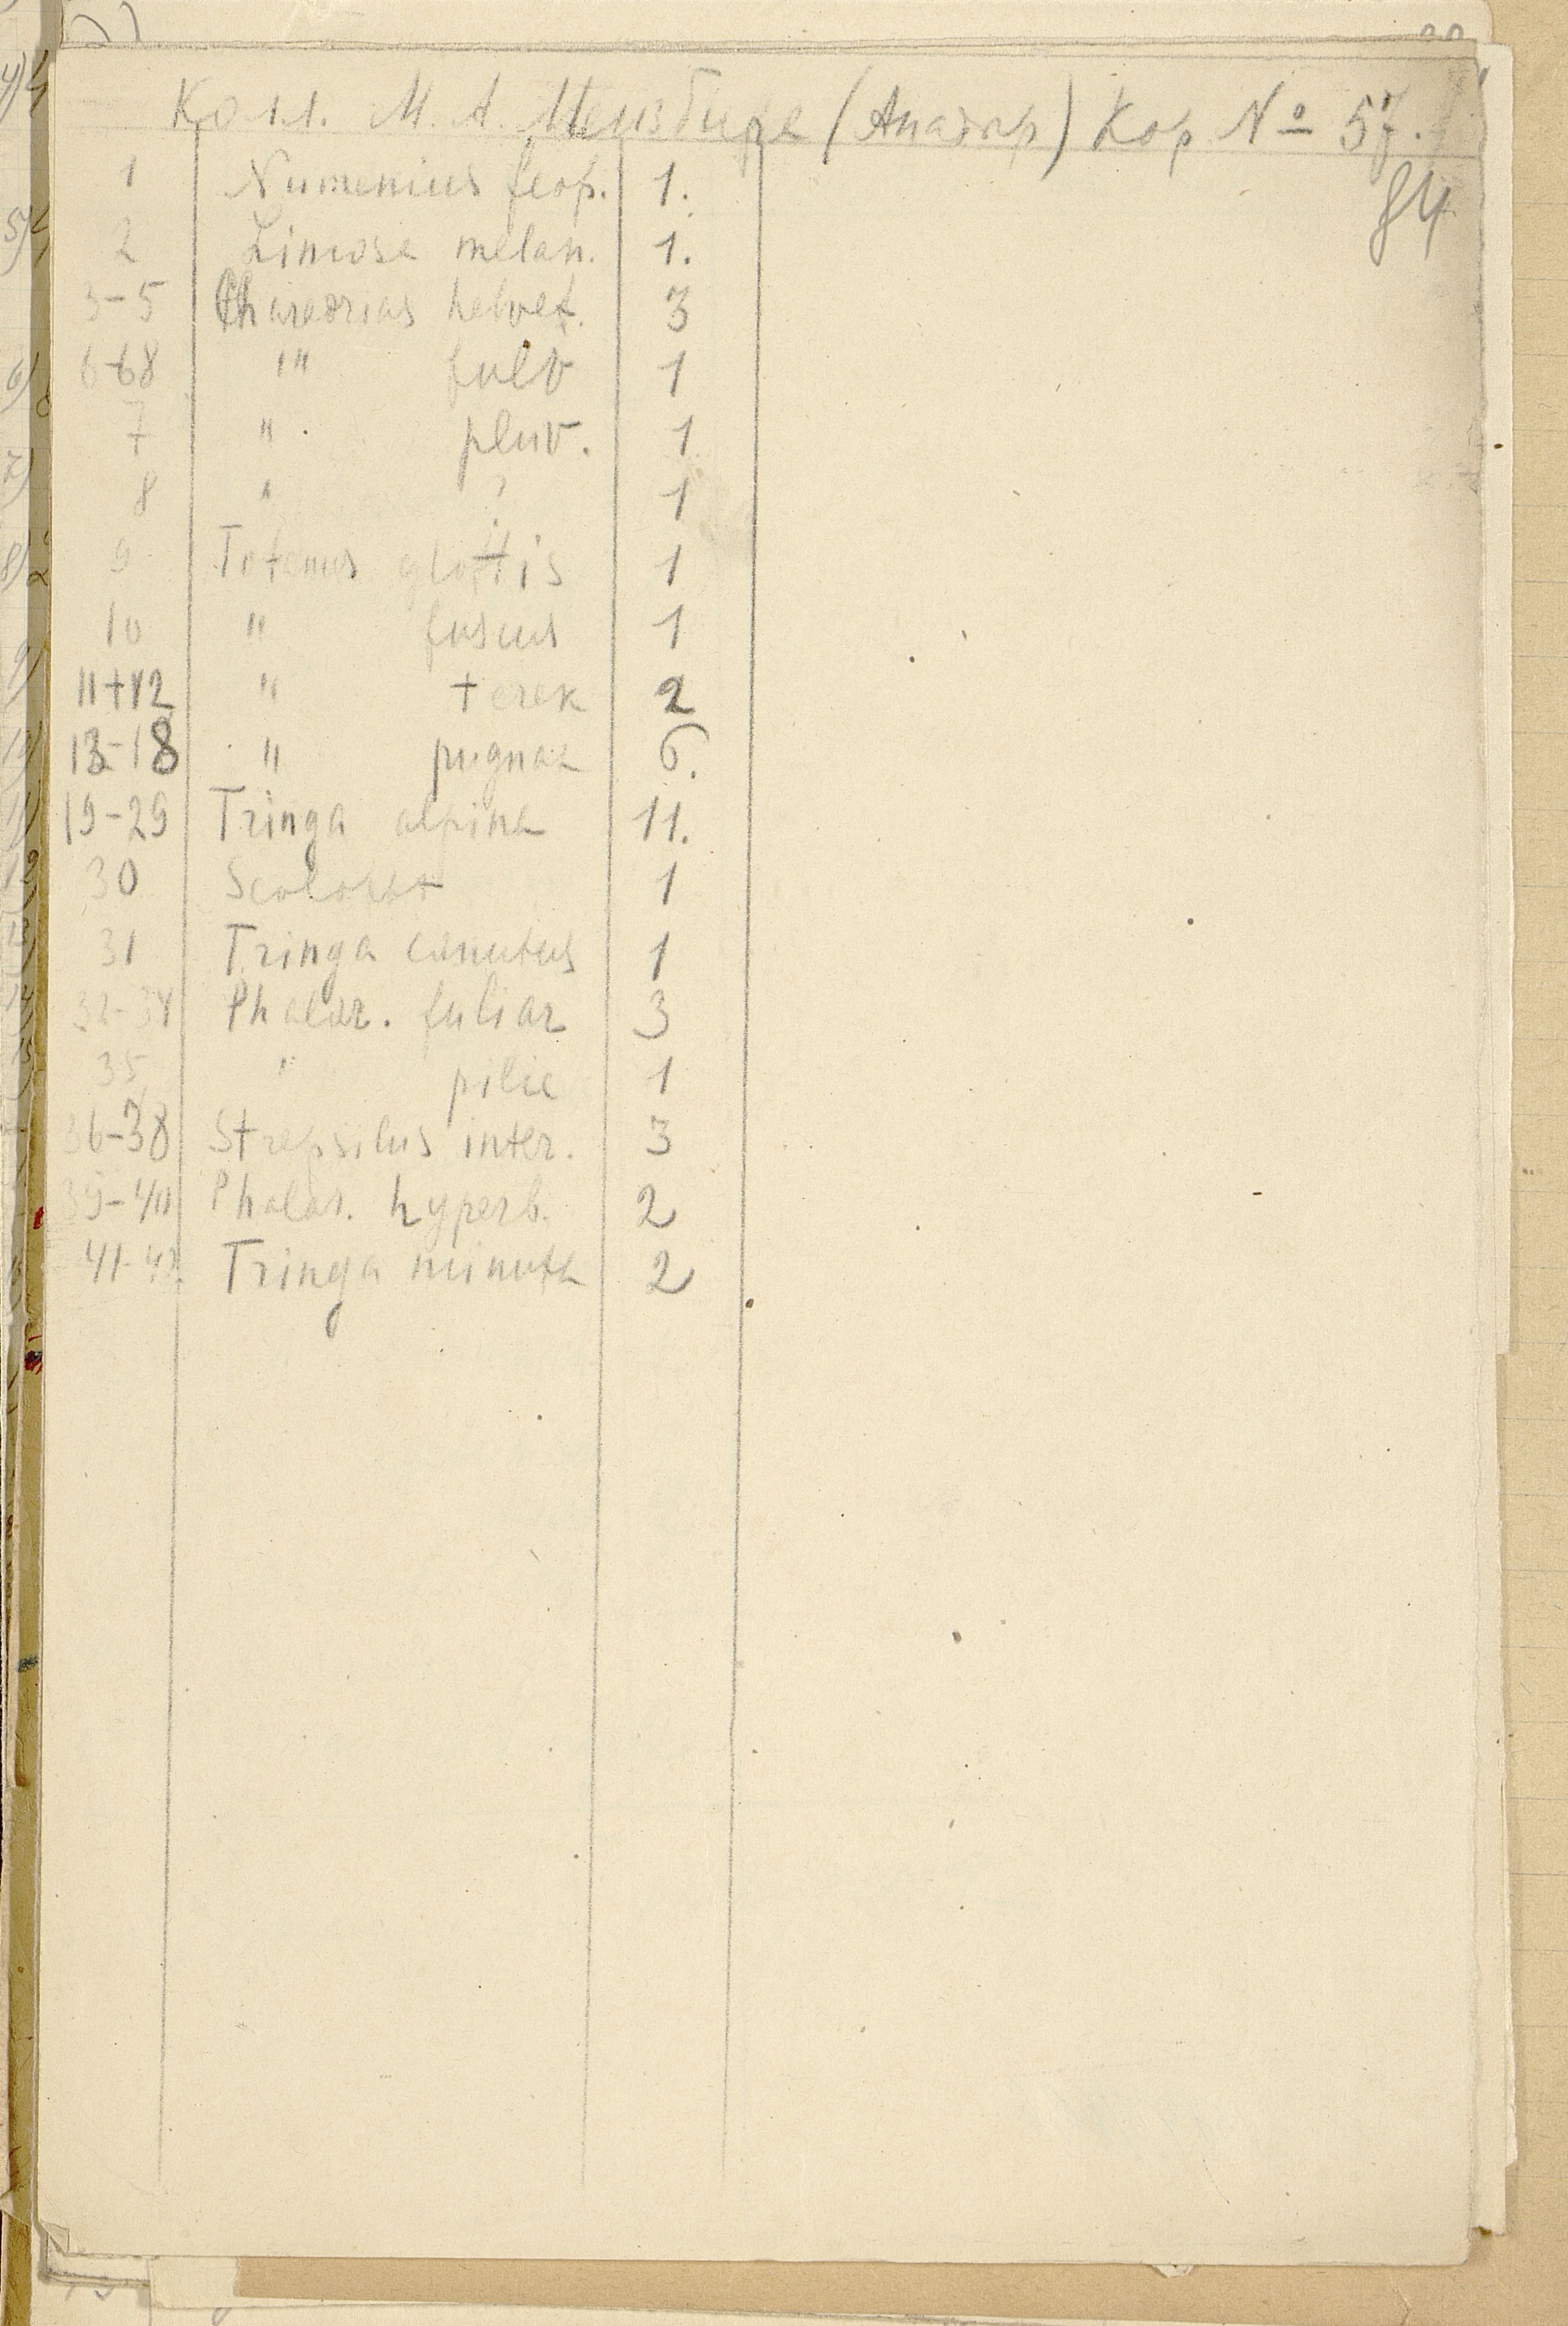 Колл. М. А. Мензбира (Анадыр) Кор № 57.
84
1 Numenius feop. 1.
2 Limosa melan. 1.
3-5 Charadrias helvet. 3
6-68 " fulv 1
7 " pluv. 1
8 " ? 1
9 Totanus glottis 1
10 " fuscus 1
11+12 " terek 2
13-18 " pugnax 6.
19-29 Tringa alpina 11.
30 1
31 Tringa canutus 1
32-34 Phalar. fuliar 3
35 " 1
36-38 Strepsilus inter. 3
39-40 Phalar. hyperb. 2
41-42. Tringa minuta 2